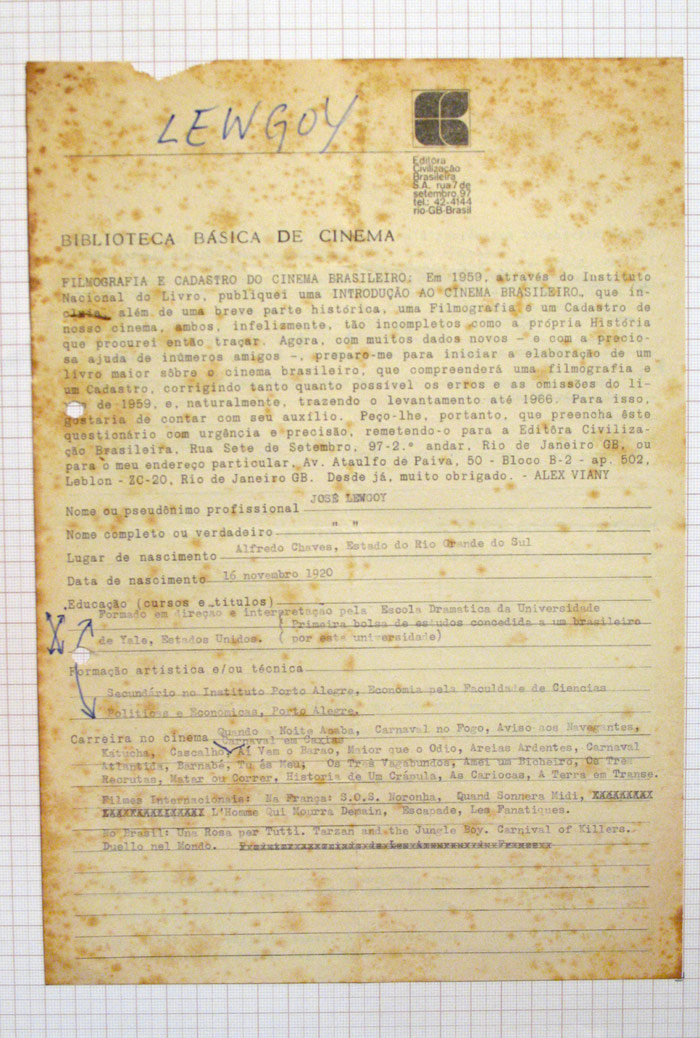 LEWGOY
Editôra
Civilização
Brasileira
S.A. rua 7 de
setembro, 97
tel.: 42-4144
rio-GB-Brasil
BIBLIOTECA BÁSICA DE CINEMA
FILMOGRAFIA E CADASTRO DO CINEMA BRASILEIRO: Em 1959, através do Instituto
Nacional do Livro, publiquei uma INTRODUÇÃO AO CINEMA BRASILEIRO, que in-
cluía, além de uma breve parte histórica, uma Filmografia e um Cadastro de
nosso cinema, ambos, infelismente, tão incompletos como a própria História
que procurei então traçar. Agora, com muitos dados novos - e com a precio-
sa ajuda de inúmeros amigos -, preparo-me para iniciar a elaboração de um
livro maior sôbre o cinema brasileiro, que compreenderá uma filmografia e
um Cadastro, corrigindo tanto quanto possível os erros e as omissões do li-
de 1959, e, naturalmente, trazendo o levantamento até 1966. Para isso,
gostaria de contar com seu auxílio. Peço-lhe, portanto, que preencha êste
questionário com urgência e precisão, remetendo-o para a Editôra Civiliza-
ção Brasileira, Rua Sete de Setembro, 97-2.º andar, Rio de Janeiro GB, ou
para o meu endereço particular, Av. Ataulfo de Paiva, 50 - Bloco B-2 - ap. 502,
Leblon - ZC-20, Rio de Janeiro GB. Desde já, muito obrigado. - ALEX VIANY
Nome ou pseudônimo profissional JOSÉ LEWGOY
Nome completo ou verdadeiro " "
Lugar de nascimento Alfredo Chaves, Estado do Rio Grande do Sul
Data de nascimento 16 novembro 1920
Educação (cursos e títulos)
Formado em direção e interpretação pela Escola Dramatica da Universidade
de Yale, Estados Unidos. ( Primeira bolsa de estudos concedida a um brasileiro
por esta universidade)
Formação artística e/ou técnica
Secundário no Instituto Porto Alegre, Economia pela Faculdade de Ciencias
Politicas e Economicas, Porto Alegre.
Carreira no cinema Quando a Noite Acaba, Carnaval no Fogo, Aviso aos Navegantes,
Carnaval em Caxias
Katucha, Cascalho, Aí Vem o Barao, Maior que o Odio, Areias Ardentes, Carnaval
Atlantida, Barnabé, Tu és Meu, Os Tres Vagabundos, Amei um Bicheiro, Os Tres
Recrutas, Matar ou Correr, Historia de Um Crápula, As Cariocas, A Terra em Transe.
Filmes Internacionais: Na França: S.O.S. Noronha, Quand Sonnera Midi, XXXXXXXXX
L'Homme Qui Mourra Demain, Escapade, Les Fanatiques.
No Brasil: Una Rosa per Tutti. Tarzan and the Jungle Boy. Carnival of Killers.
Duello nel Mondo.